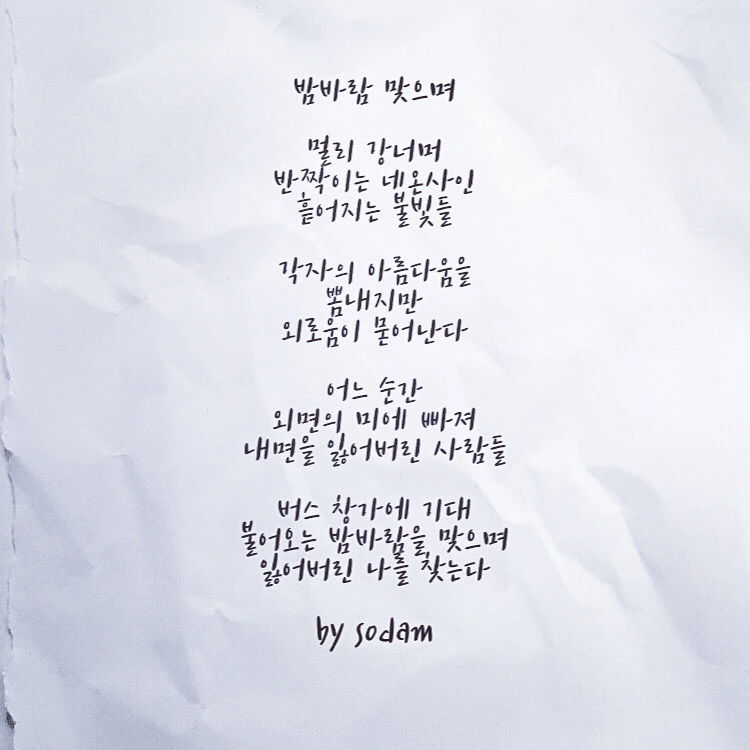 밤바람 맞으며
멀리 강너머
반짝이는 네온사인
흩어지는 불빛들
각자의 아름다움을
뽐내지만
외로움이 묻어난다
어느 순간
외면의 미에 빠져
내면을 잃어버린 사람들
버스 창가에 기대
불어오는 밤바람을 맞으며
잃어버린 나를 찾는다
by sodam